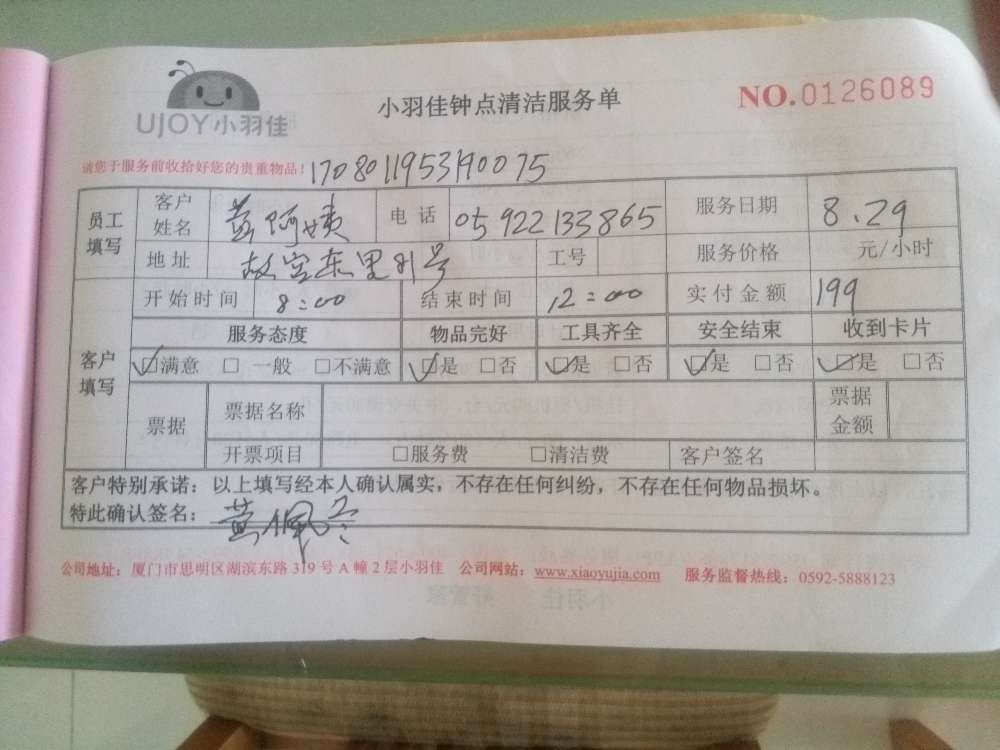 UJOY 小羽佳
小羽佳钟点清洁服务单
NO.0126089
请您于服务前收拾好您的贵重物品！ 1708011953190075
员工填写 客户姓名 黄阿姨 电话 05922133865 服务日期 8.29
地址 东里 号 工号 服务价格 元/小时
客户填写 开始时间 8:00 结束时间 12:00 实付金额 199
服务态度 物品完好 工具齐全 安全结束 收到卡片
☑满意 □一般 □不满意 ☑是 □否 ☑是 □否 ☑是 □否 ☑是 □否
票据 票据名称 票据金额
开票项目 □服务费 □清洁费 客户签名
客户特别承诺：以上填写经本人确认属实，不存在任何纠纷，不存在任何物品损坏。
特此确认签名： 黄佩
公司地址：厦门市思明区湖滨东路319号A幢2层小羽佳 公司网站：www.xiaoyujia.com 服务监督热线：0592-5888123